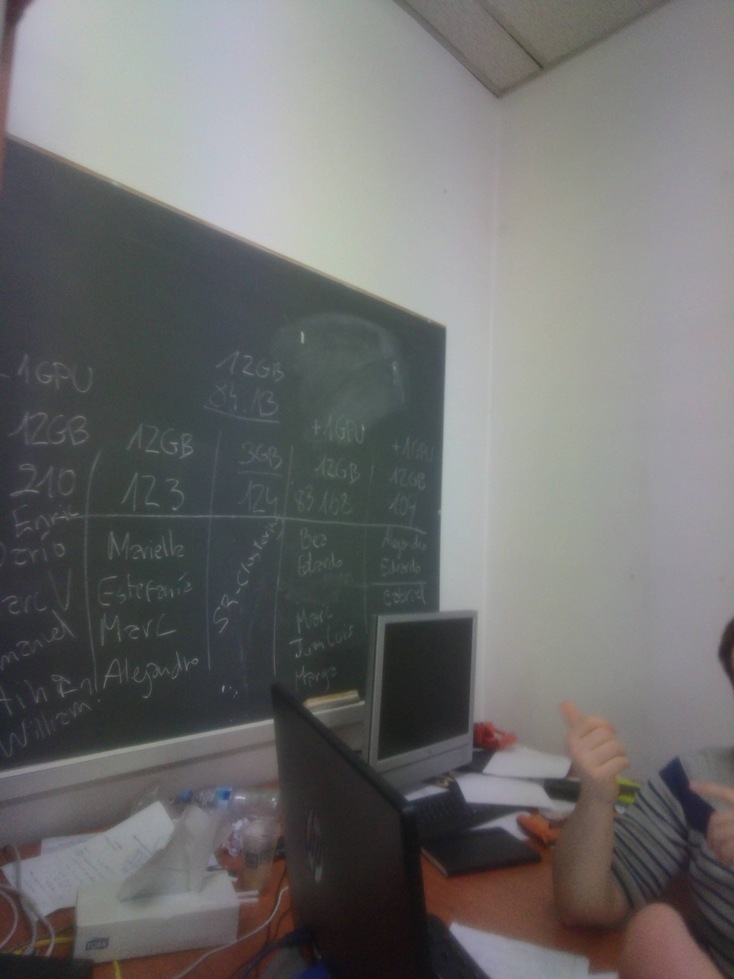 1GPU
12GB
210
Enric
Dario
Marc V
William
12GB
123
Mariella
Estefania
Marc
Alejandro
12GB
84.13
3GB
124
SR-Clustering
+1GPU
12GB
83 108
Bea
Eduardo
Marc
Juan Luis
Marga
+1GPU
12GB
104
Alejandro
Eduardo
Gabriel
hp